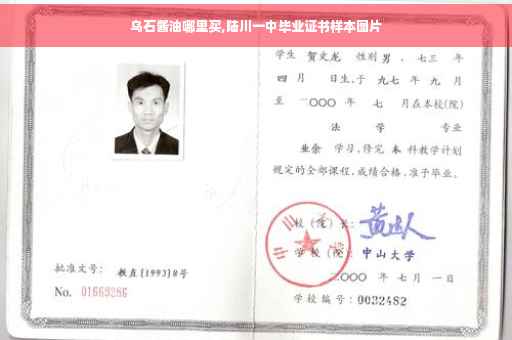 乌石酱油哪里买,陆川一中毕业证书样本图片
学生 贺文龙 性别 男 、七三 年
四 月 日生,于 九七 年 九 月
至 二〇〇〇 年 七 月在本校(院)
法 学 专业
业余 学习,修完 本 科教学计划
规定的全部课程,成绩合格,准予毕业。
校(院)长:
学校(院): 中山大学
批准文号: 教直[1993]8号
二〇〇〇 年 七月 一日
No. 01669286
学校编号: 0032482